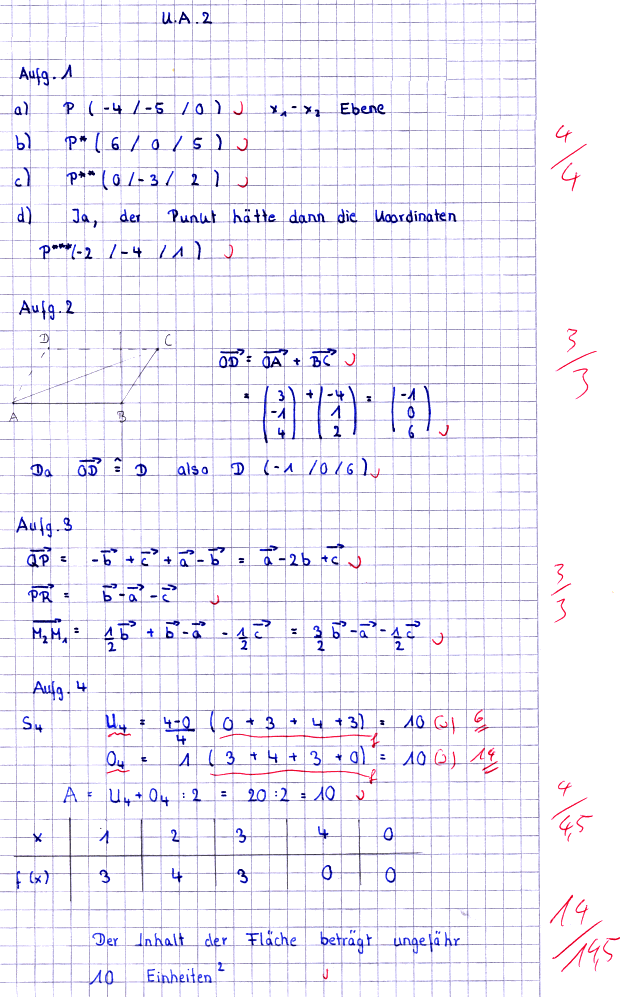 U.A.2
Aufg. 1
a) P ( -4 / -5 / 0 ) x₁-x₂ Ebene
4/4
b) P* ( 6 / 0 / 5 )
c) P** ( 0 / -3 / 2 )
d) Ja, der Punut hätte dann die Uoordinaten
P*** (-2 / -4 / 1 )
Aufg. 2
D C
A B
OD→ = OA→ + BC→
3/3
= (3 -1 4) + (-4 1 2) = (-1 0 6)
Da OD→ ≙ D also D ( -1 / 0 / 6 )
Aufg. 3
QP→ = -b→ + c→ + a→ - b→ = a→ - 2b + c→
3/3
PR→ = b→ - a→ - c→
M₂M₁→ = 1/2 b→ + b→ - a→ - 1/2 c→ = 3/2 b→ - a→ - 1/2 c→
Aufg. 4
S₄ U₄ = 4-0/4 ( 0 + 3 + 4 + 3 ) = 10 (✓) 6
f
O₄ = 1 ( 3 + 4 + 3 + 0 ) = 10 (✓) 14
f
A = U₄ + O₄ : 2 = 20 : 2 = 10
4/4,5
x 1 2 3 4 0
f (x) 3 4 3 0 0
14/14,5
Der Inhalt der Fläche beträgt ungefähr
10 Einheiten²